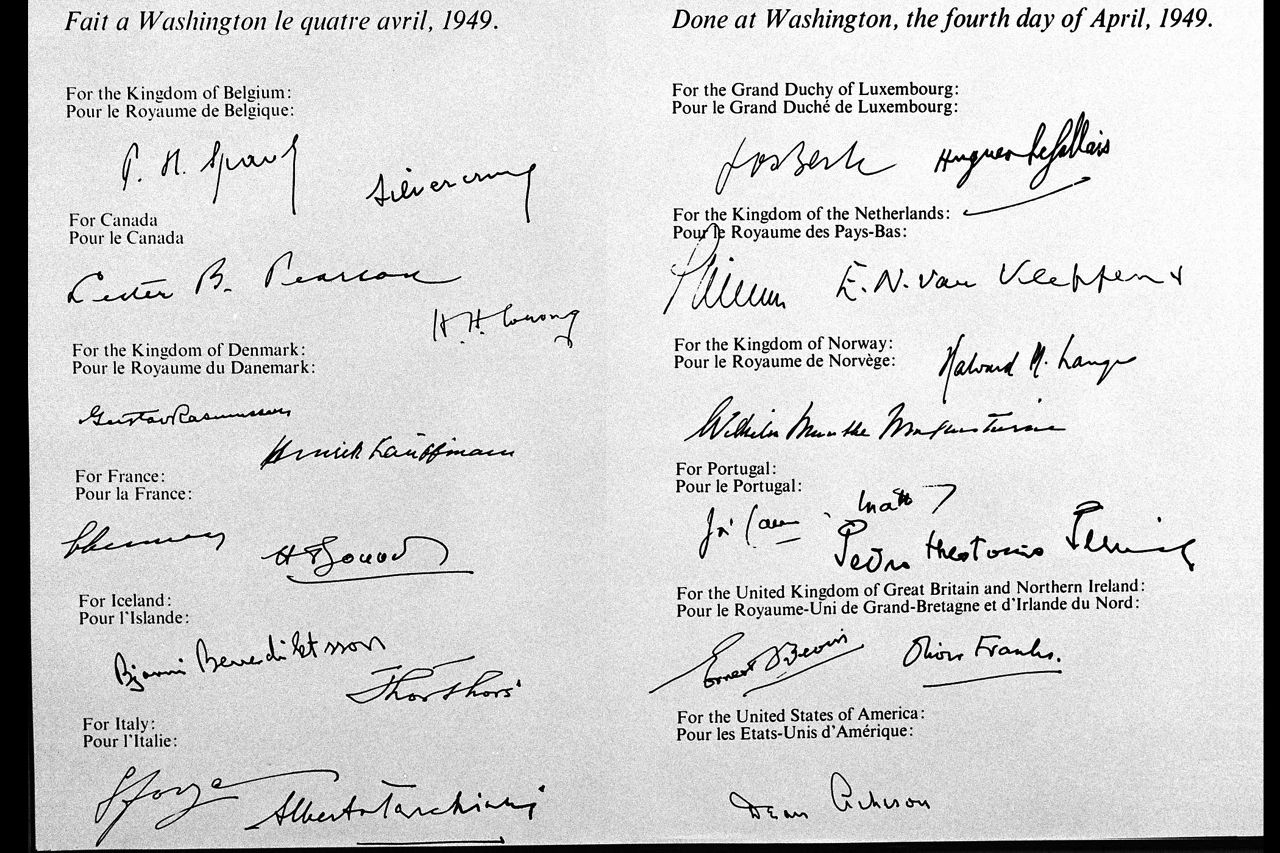 Fait a Washington le quatre avril, 1949.
For the Kingdom of Belgium:
Pour le Royaume de Belgique:
P. H. Spaak
Silvercruys
For Canada
Pour le Canada
Lester B. Pearson
H. H. Wrong
For the Kingdom of Denmark:
Pour le Royaume du Danemark:
Gustav Rasmussen
Henrik Kauffmann
For France:
Pour la France:
Schuman
H Bonnet
For Iceland:
Pour l'Islande:
Bjarni Benediktsson
Thor Thors
For Italy:
Pour l'Italie:
Sforza
Alberto Tarchiani
Done at Washington, the fourth day of April, 1949.
For the Grand Duchy of Luxembourg:
Pour le Grand Duché de Luxembourg:
Jos Bech Hugues Le Gallais
For the Kingdom of the Netherlands:
Pour le Royaume des Pays-Bas:
E. N. van Kleffens
For the Kingdom of Norway:
Pour le Royaume de Norvège:
Halvard M. Lange
Wilhelm Munthe Morgenstierne
For Portugal:
Pour le Portugal:
Pedro Theotonio Pereira
For the United Kingdom of Great Britain and Northern Ireland:
Pour le Royaume-Uni de Grand-Bretagne et d'Irlande du Nord:
Ernest Bevin Oliver Franks.
For the United States of America:
Pour les Etats-Unis d'Amérique:
Dean Acheson